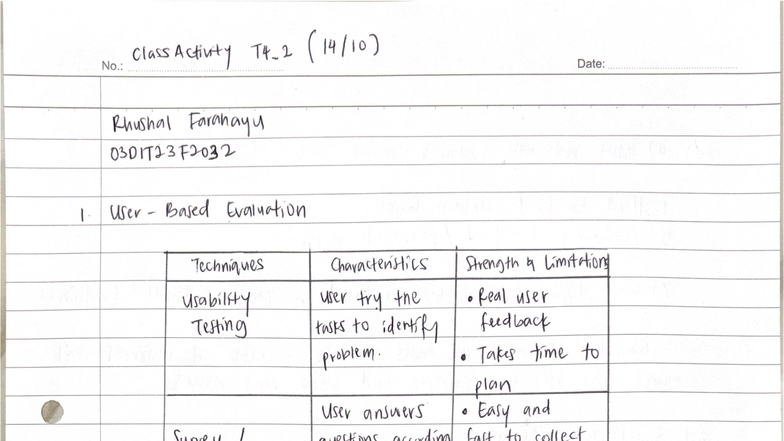 Class Activity T4_2 (14/10)
No.:
Date:
Rhushal Farahayu
03DIT23F2032
1. User-Based Evaluation
Techniques Characteristics Strength & Limitations
Usability Testing
user try the tasks to identify problem.
• Real user feedback
• Takes time to plan
Survey /
User answers questions according
• Easy and fast to collect